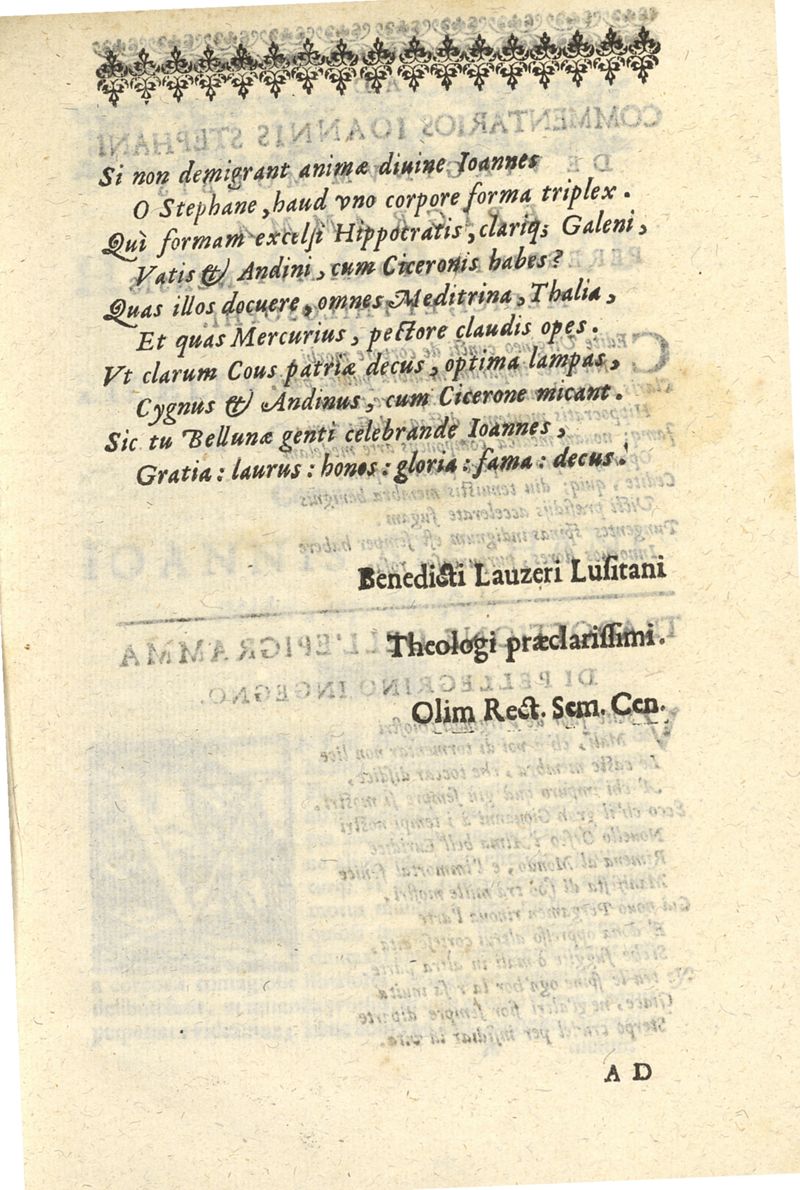 Si non demigrant animæ diuine Ioannes
O Stephane, haud vno corpore forma triplex.
Quì formam excelsi Hippocratis, clariq; Galeni,
Vatis & Andini, cum Ciceronis habes?
Quas illos docuere, omnes Meditrina, Thalia,
Et quas Mercurius, pectore claudis opes.
Vt clarum Cous patriæ decus, optima lampas,
Cygnus & Andinus, cum Cicerone micant.
Sic tu Bellunæ genti celebrande Ioannes,
Gratia: laurus: honos: gloria: fama: decus.
Benedicti Lauzeri Lusitani
Theologi præclarissimi.
Olim Rect. Sem. Cen.
AD